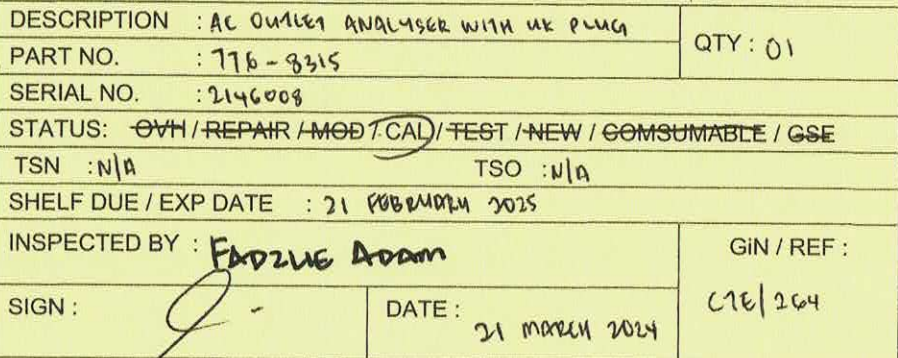 DESCRIPTION : AC OUTLET ANALYSER WITH UK PLUG
QTY : 01
PART NO. : 776-8315
SERIAL NO. : 2146008
STATUS: OVH / REPAIR / MOD / CAL / TEST / NEW / COMSUMABLE / GSE
TSN : N/A TSO : N/A
SHELF DUE / EXP DATE : 21 FEBRUARY 2025
INSPECTED BY : FADZLIE ADAM
GiN / REF :
CTE/264
SIGN :
DATE : 21 MARCH 2024